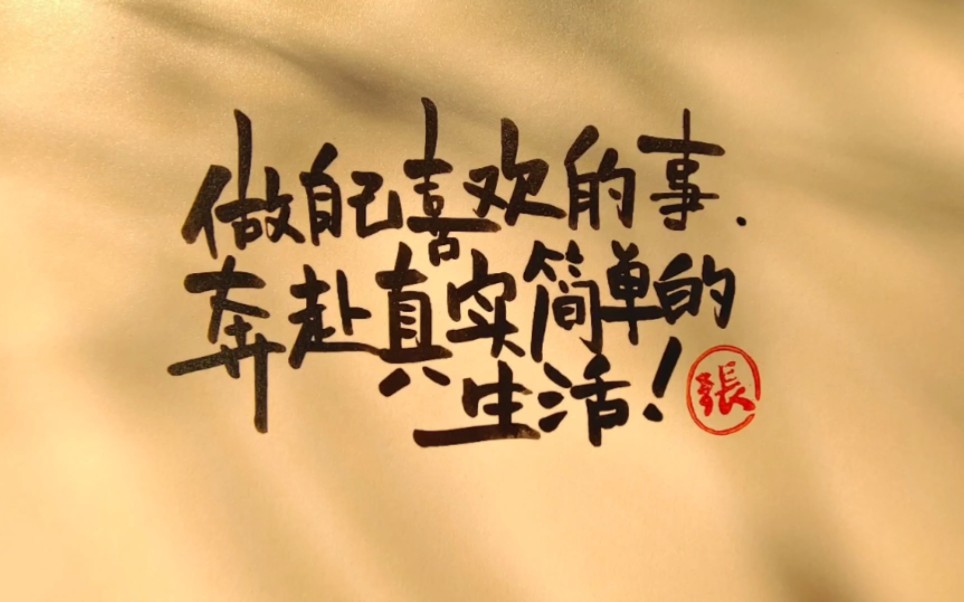 做自己喜欢的事.
奔赴真实简单的
生活!
張